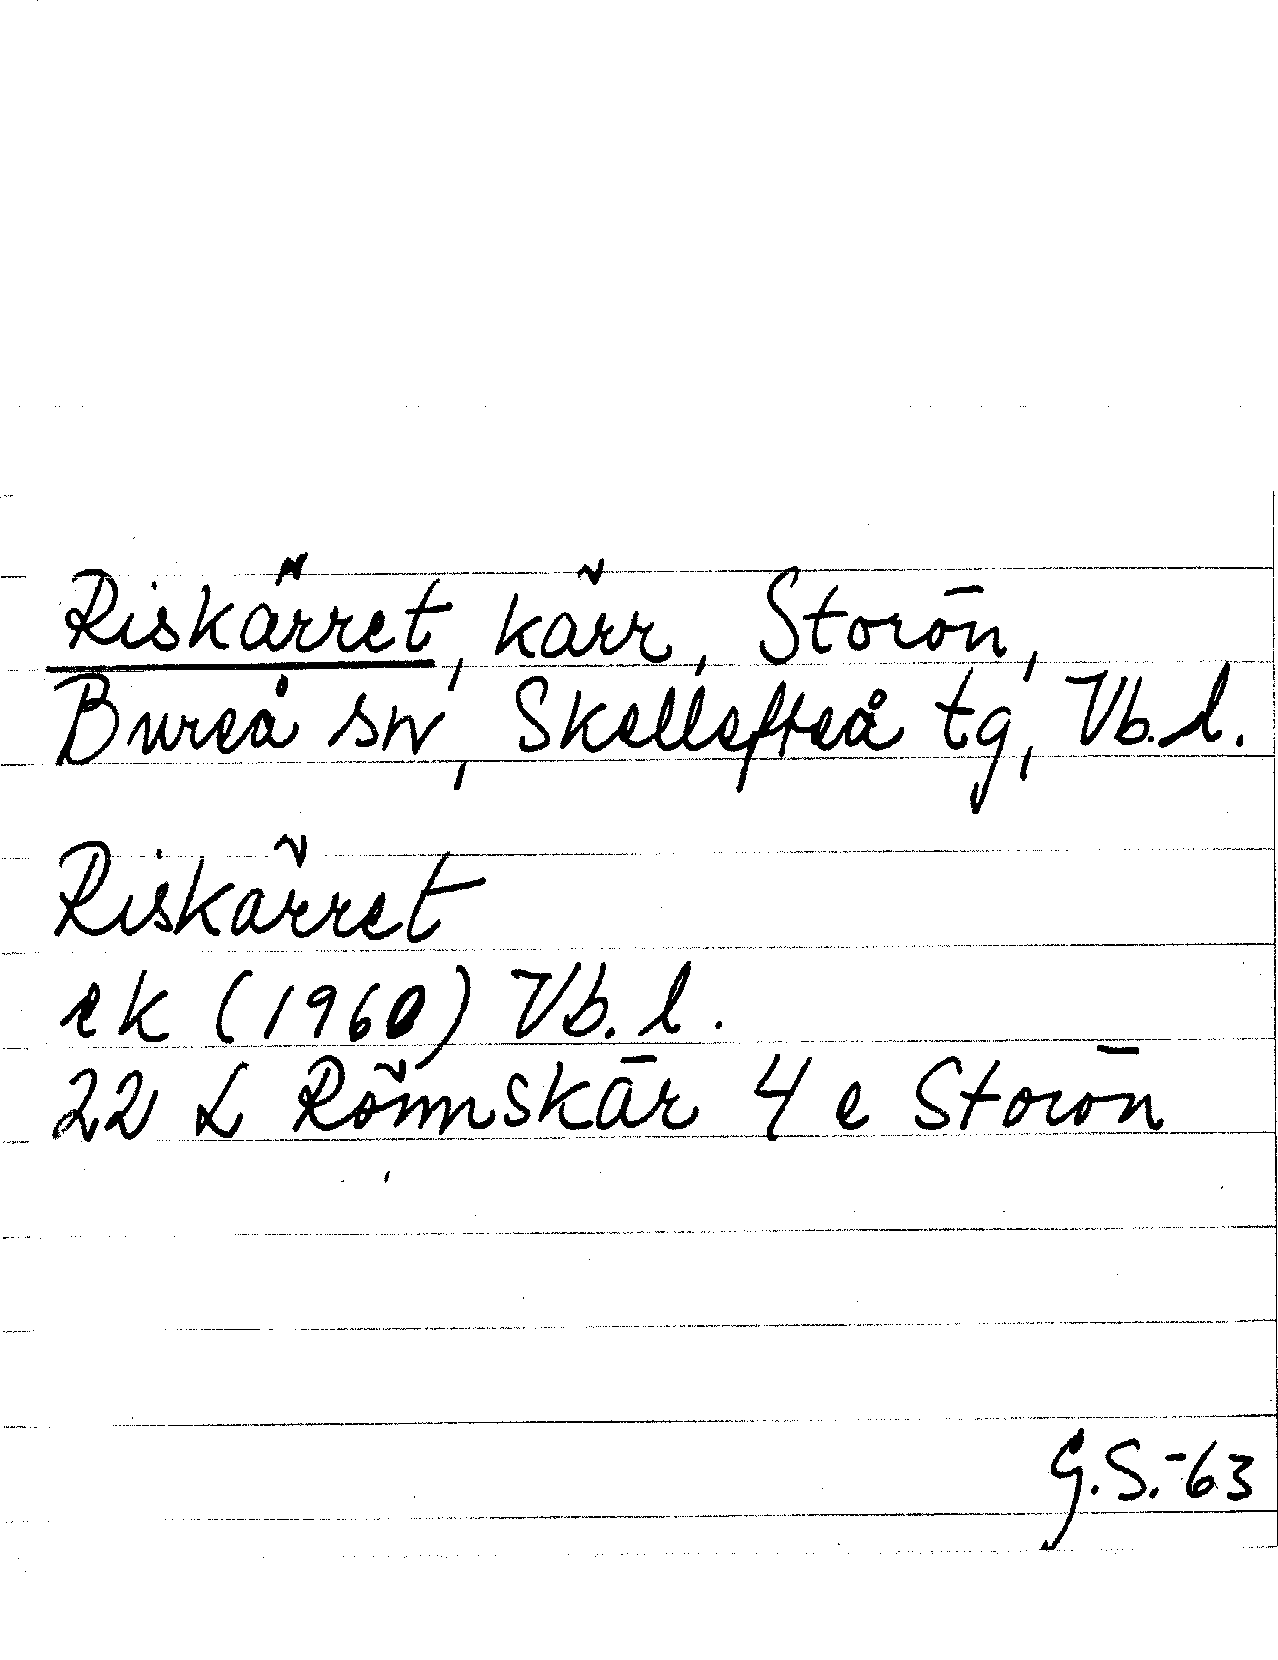 Riskärret, kärr, Storön,
Bureå sn, Skellefteå tg, Vb.l.
Riskärret
ek (1960) Vb.l.
22 L Rönnskär 4 e Storön
G.S.-63